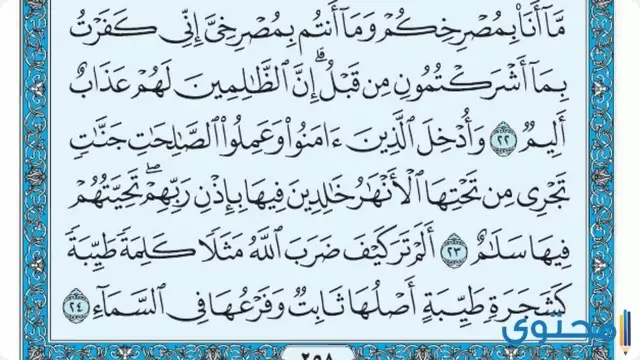 مَّآ أَنَا۠ بِمُصْرِخِكُمْ وَمَآ أَنتُم بِمُصْرِخِىَّ إِنِّى كَفَرْتُ
بِمَآ أَشْرَكْتُمُونِ مِن قَبْلُ ۗ إِنَّ ٱلظَّٰلِمِينَ لَهُمْ عَذَابٌ
أَلِيمٌ ٢٢ وَأُدْخِلَ ٱلَّذِينَ ءَامَنُوا۟ وَعَمِلُوا۟ ٱلصَّٰلِحَٰتِ جَنَّٰتٍ
تَجْرِى مِن تَحْتِهَا ٱلْأَنْهَٰرُ خَٰلِدِينَ فِيهَا بِإِذْنِ رَبِّهِمْ ۖ تَحِيَّتُهُمْ
فِيهَا سَلَٰمٌ ٢٣ أَلَمْ تَرَ كَيْفَ ضَرَبَ ٱللَّهُ مَثَلًا كَلِمَةً طَيِّبَةً
كَشَجَرَةٍ طَيِّبَةٍ أَصْلُهَا ثَابِتٌ وَفَرْعُهَا فِى ٱلسَّمَآءِ ٢٤
٢٥٨
محتوى